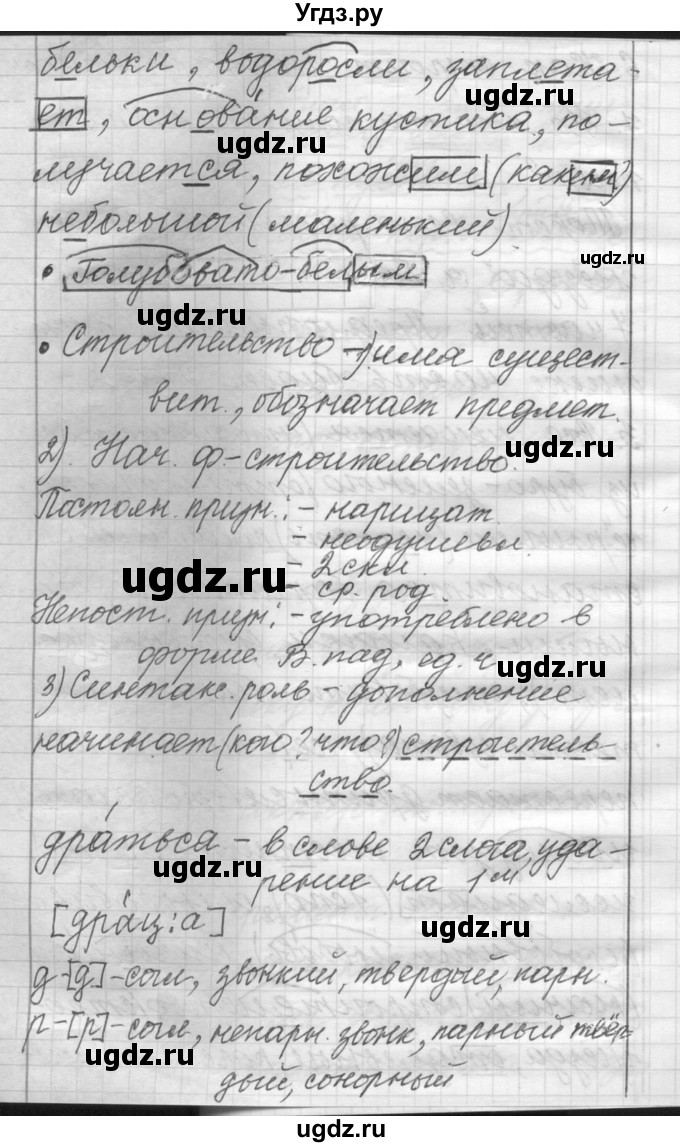 Угдз.ру
бельки, водоросли, заплета-
ет, основа́ние кустика, по-
лучается, похожим (каким?)
небольшой (маленький)
• Голубовато-белым
• Строительство – 1) имя сущест-
вит., обозначает предмет.
2). Нач. ф – строительство.
Постоян. призн.: – нарицат.
– неодушевл.
– 2 скл.
– ср. род.
Непост. призн: – употреблено в
форме В. пад, ед. ч
3) Синтакс. роль – дополнение
начинает (кого? что?) строитель-
ство.
дра́ться – в слове 2 слога, уда-
рение на 1м
[дра́ц:а]
д-[д]-согл, звонкий, твердый, парн.
р-[р]-согл, непарн. звонк, парный твёр-
дый, сонорный
ugdz.ru
ugdz.ru
ugdz.ru
ugdz.ru
ugdz.ru
ugdz.ru
ugdz.ru
ugdz.ru
ugdz.ru
ugdz.ru
ugdz.ru
ugdz.ru
ugdz.ru
ugdz.ru